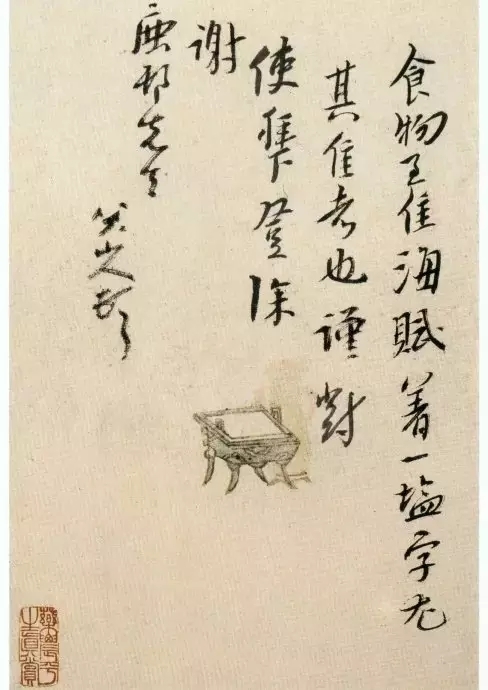 食物至佳海賦着一塩字尤
其佳者也謹對
使拜登深
謝
鹿邨先生
八大山人